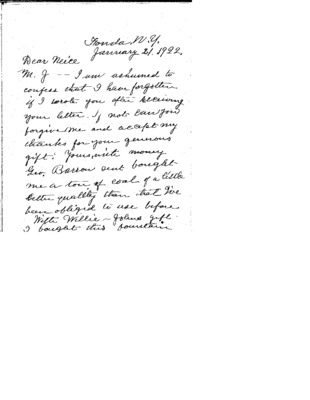 Fonda, N.Y.
January 21, 1922.
Dear Neice
M. J -- I am ashamed to
confess that I have forgotten
if I wrote you after receiving
your letter. If not can you
forgive me and accept my
thanks for your generous
gift. Yours, with money
Geo. Barrow sent bought
me a ton of coal of a little
better quality than that I've
been obliged to use before
With Willie - John's gift
I bought this fountain